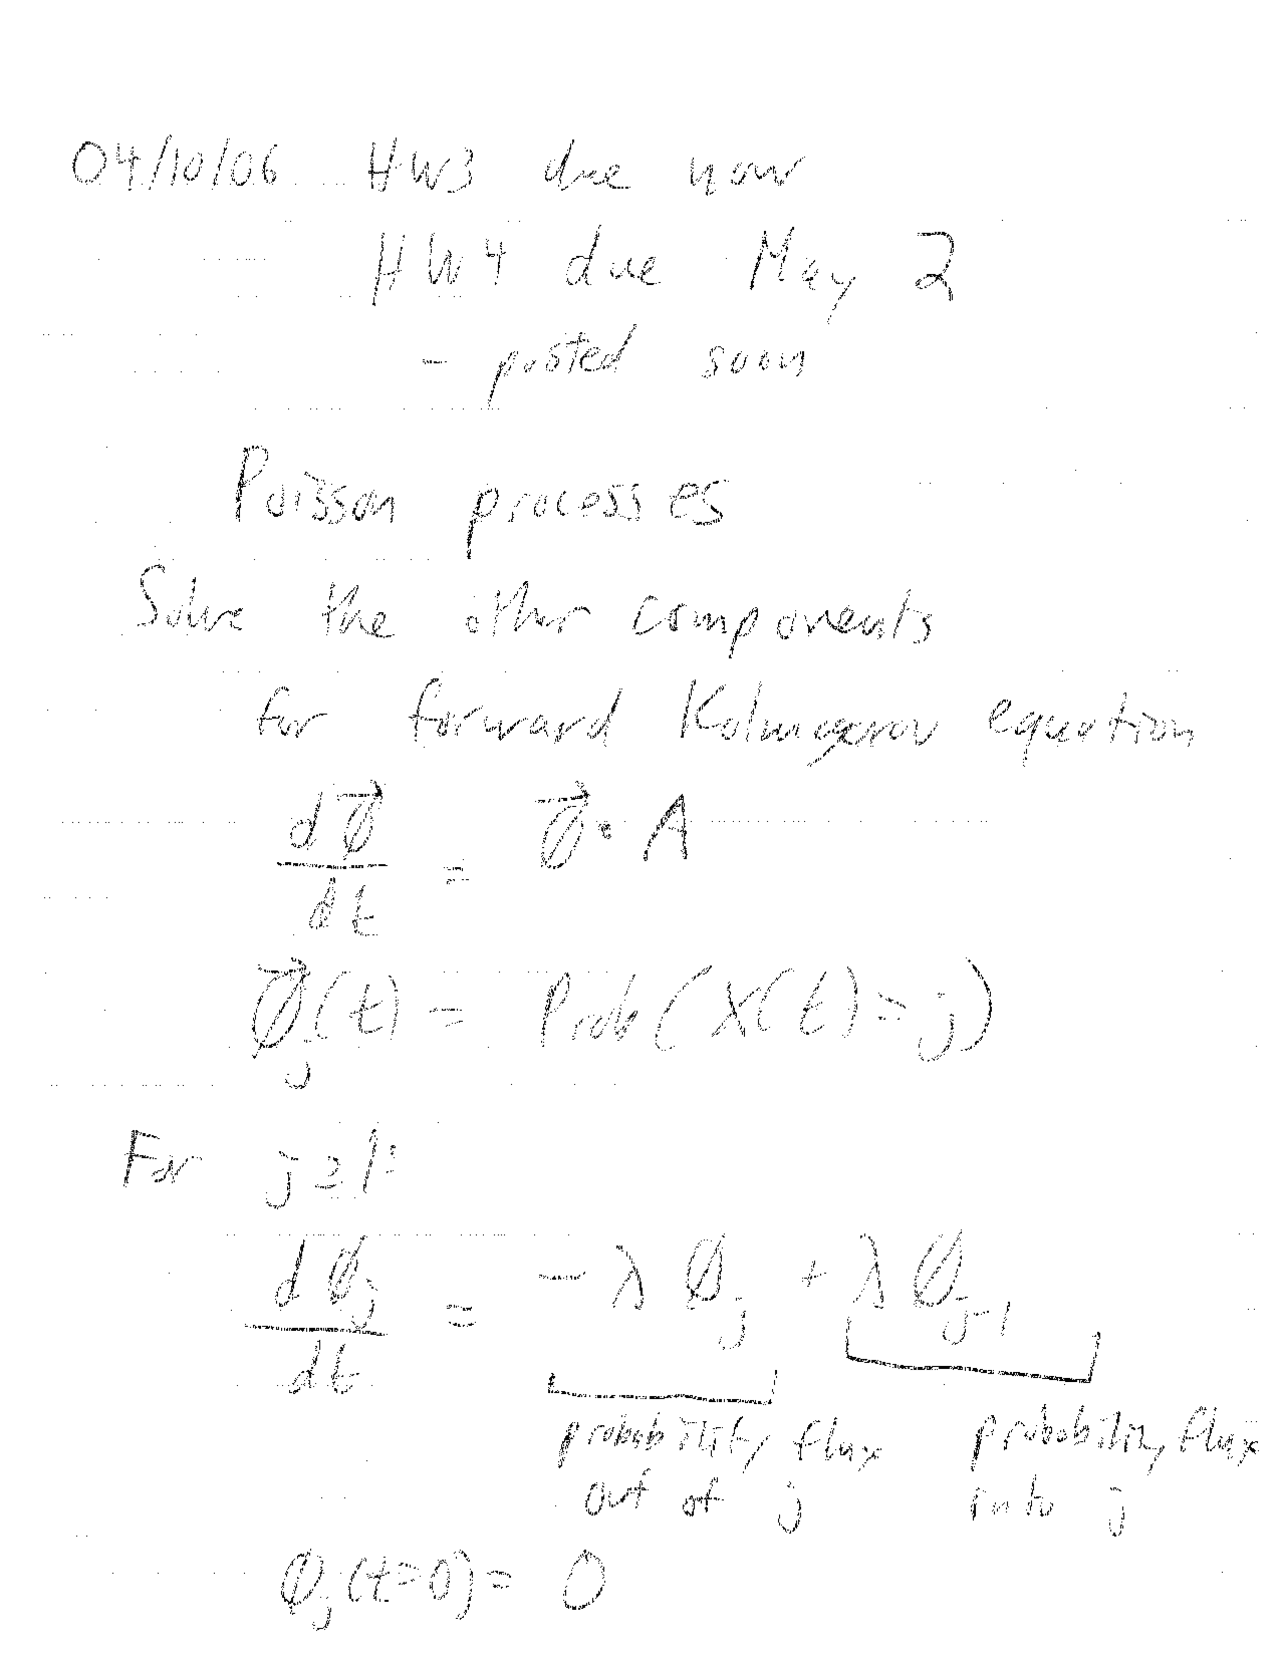 04/10/06 HW3 due now
HW4 due May 2
- posted soon
Poisson processes
Solve the other components
for forward Kolmogorov equation
dϕ⃗/dt = ϕ⃗·A
ϕ⃗_j(t) = Prob(X(t)=j)
For j≥1:
dϕ_j/dt = -λϕ_j + λϕ_{j-1}
probability flux probability flux
out of j into j
ϕ_j(t=0) = 0